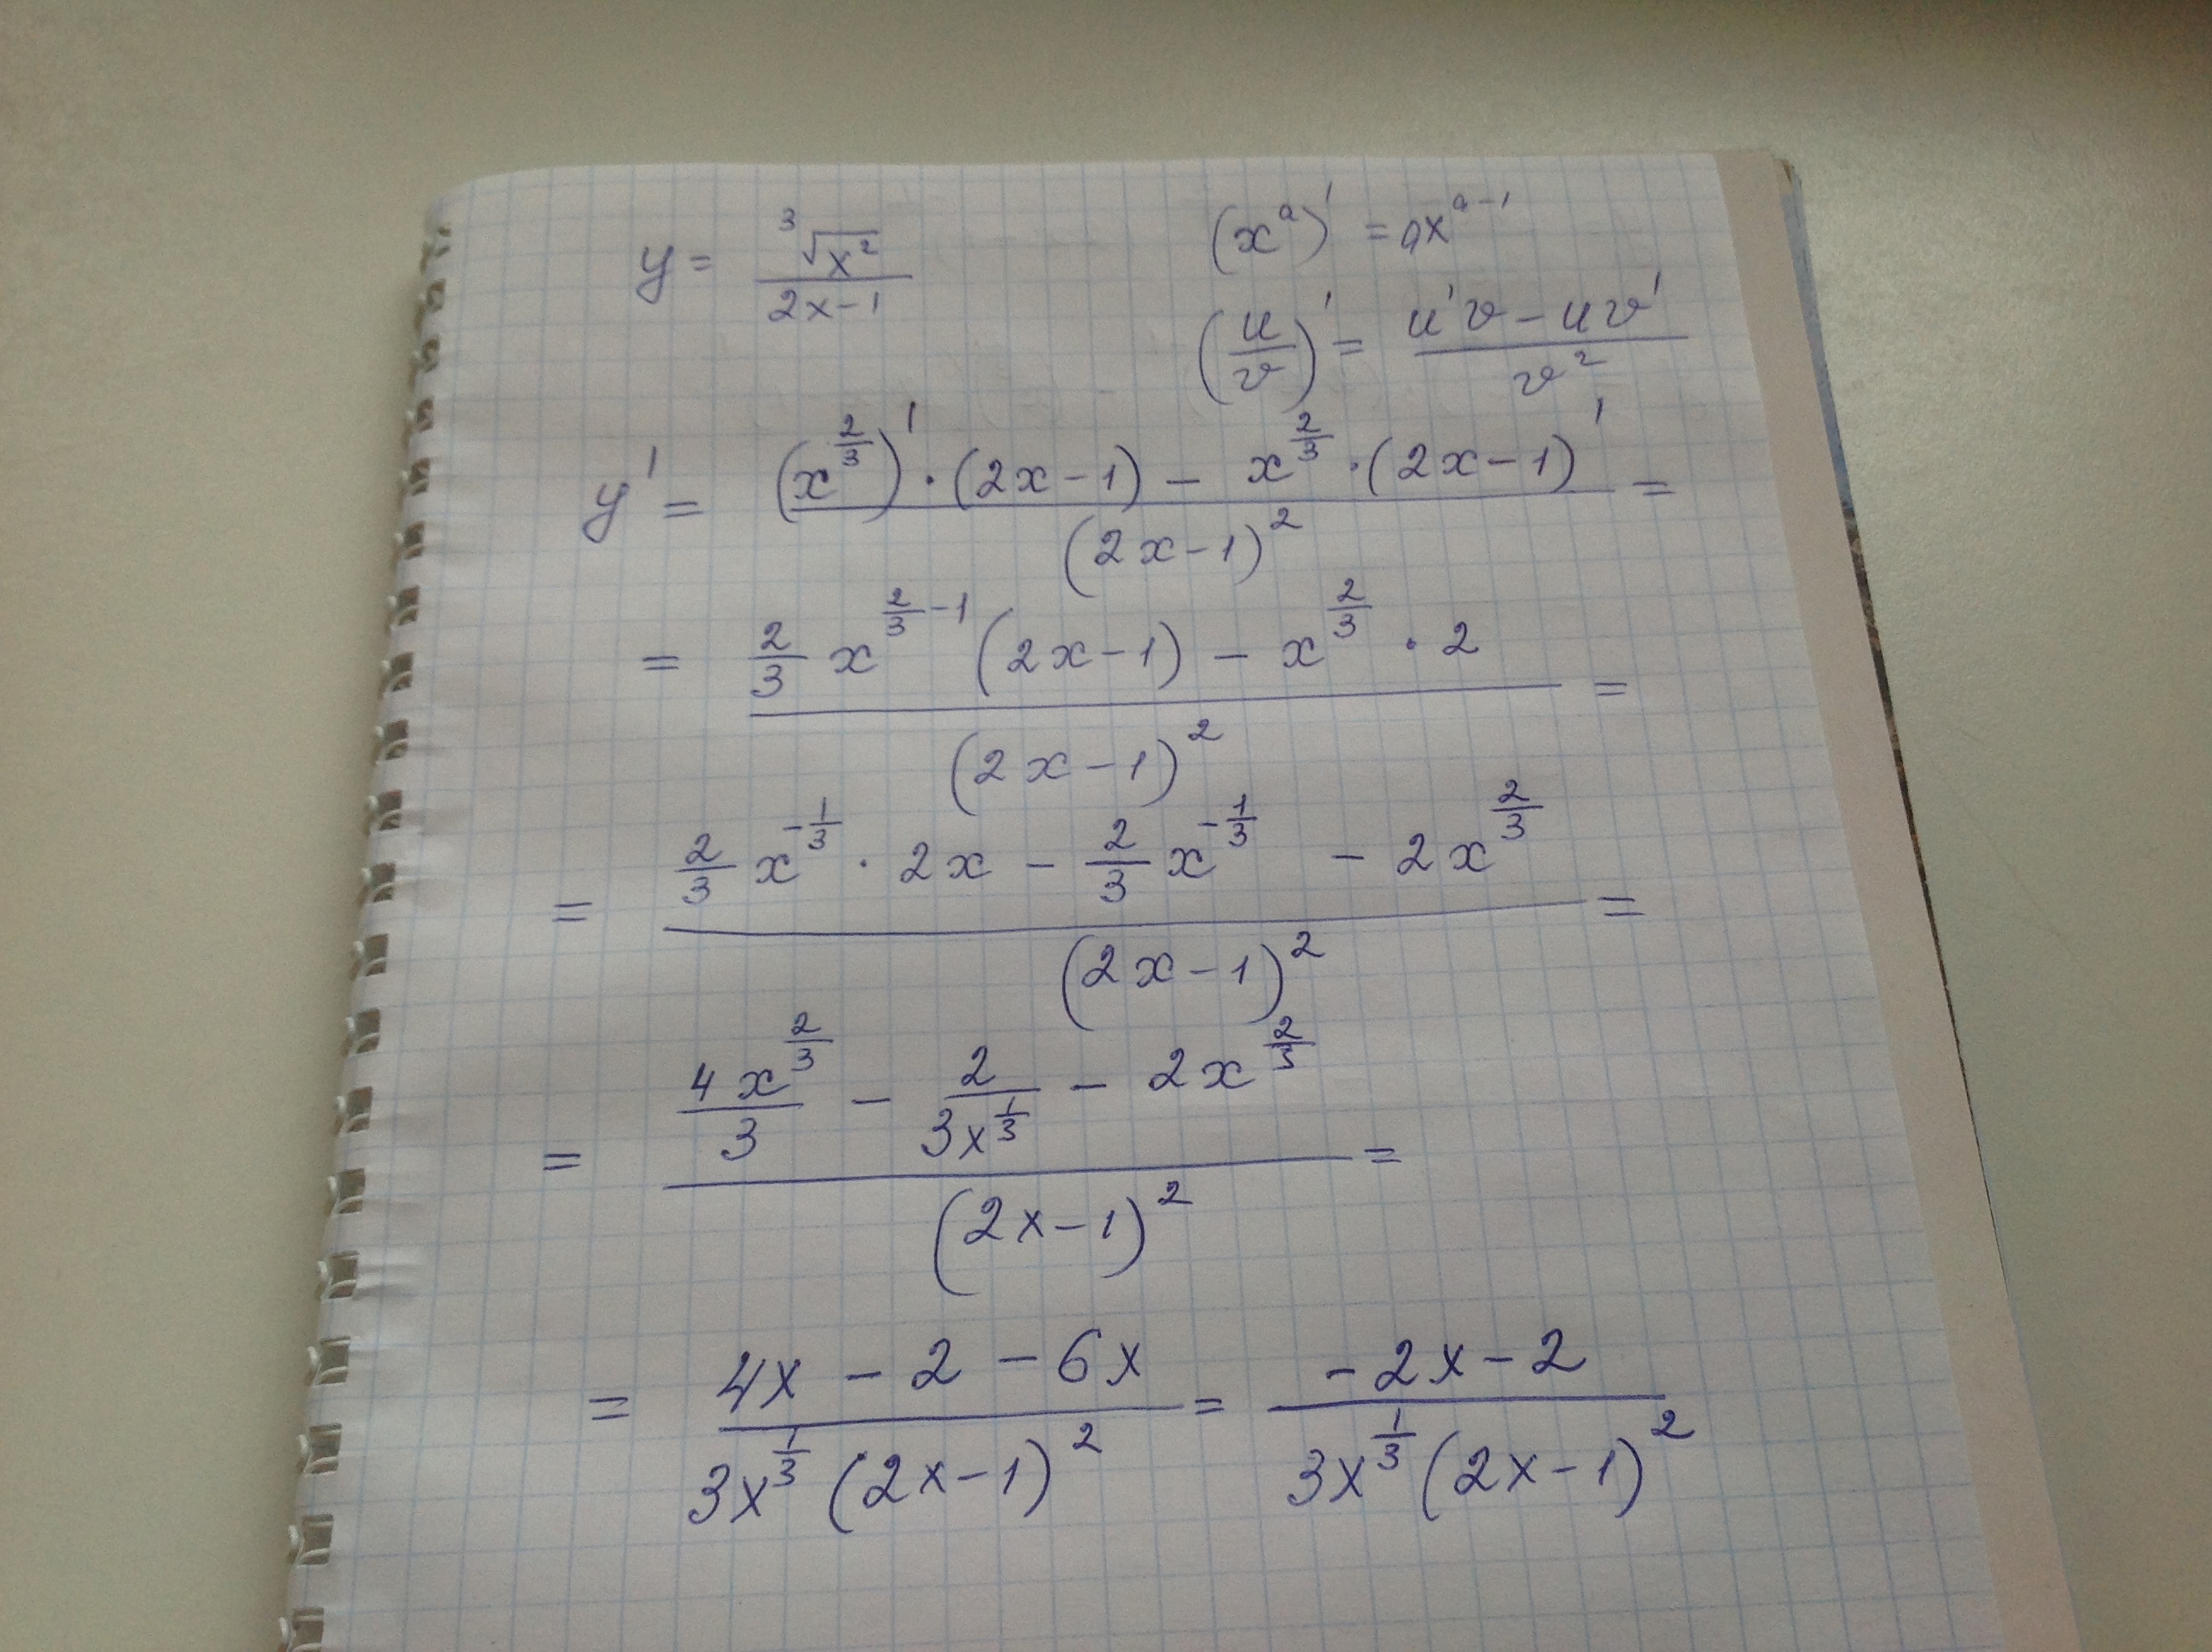 y = ∛(x²) / (2x-1)
(xᵃ)' = ax^(a-1)
(u/v)' = (u'v - uv') / v²
y' = ((x^(2/3))' · (2x-1) - x^(2/3) · (2x-1)') / (2x-1)² =
= (2/3 x^(2/3 -1) (2x-1) - x^(2/3) · 2) / (2x-1)² =
= (2/3 x^(-1/3) · 2x - 2/3 x^(-1/3) - 2x^(2/3)) / (2x-1)² =
= (4x^(2/3)/3 - 2/(3x^(1/3)) - 2x^(2/3)) / (2x-1)² =
= (4x - 2 - 6x) / (3x^(1/3) (2x-1)²) = (-2x-2) / (3x^(1/3) (2x-1)²)